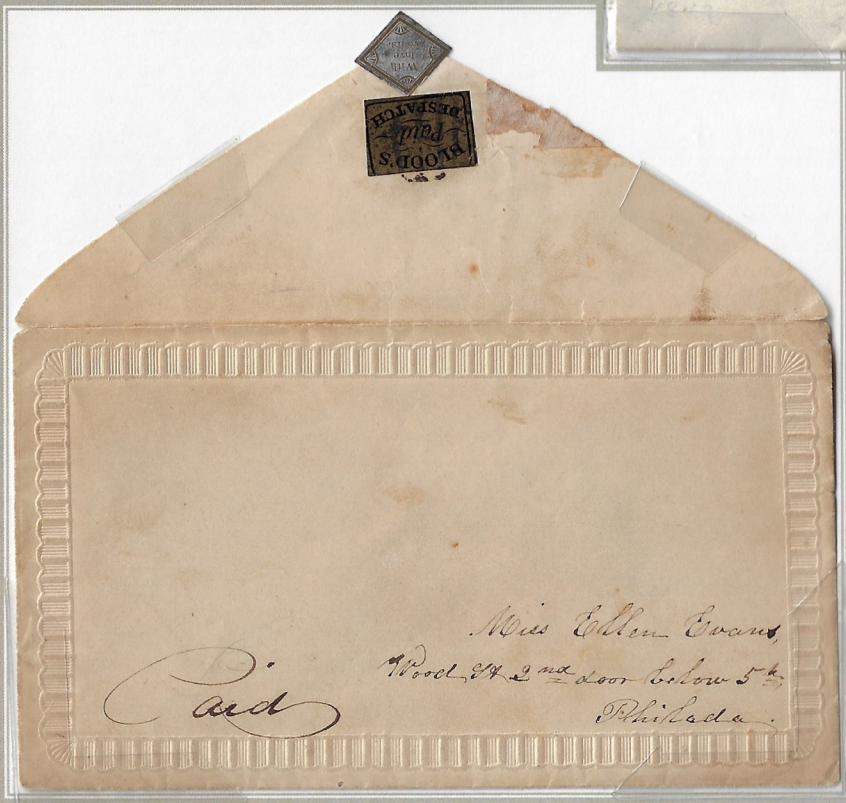 With
Love
BLOOD'S
Paid
DESPATCH
Miss Ellen Evans,
Wood St 2nd door below 5th,
Philada.
Paid